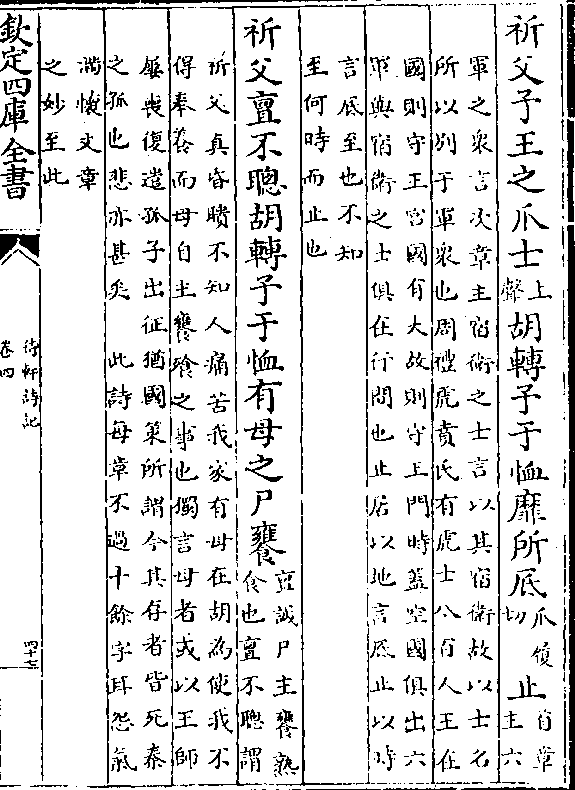 祈父予王之爪士上聲胡轉予于恤靡所厎爪厎切履止首章主六
軍之衆言次章主宿衛之士言以其宿衛故以士名
所以别于軍衆也周禮虎賁氏有虎士八百人王在
國則守王宫國有大故則守王門時蓋空國俱出六
軍與宿衛之士俱在行間也止居以地言厎止以時
言厎至也不知
至何時而止也
祈父亶不聰胡轉予于恤有母之尸饔亶誠尸主饔熟食也亶不聰謂
祈父真昏瞶不知人痛苦我家有母在胡為使我不
得奉養而母自主饔飱之事也獨言母者或以王師
屢喪復遣孤子出征猶國策所謂今其存者皆死秦
之孤也悲亦甚矣 此詩每章不過十餘字耳怨氣
滿懷文章
之妙至此
欽定四庫全書
待軒詩記
卷四
四十七